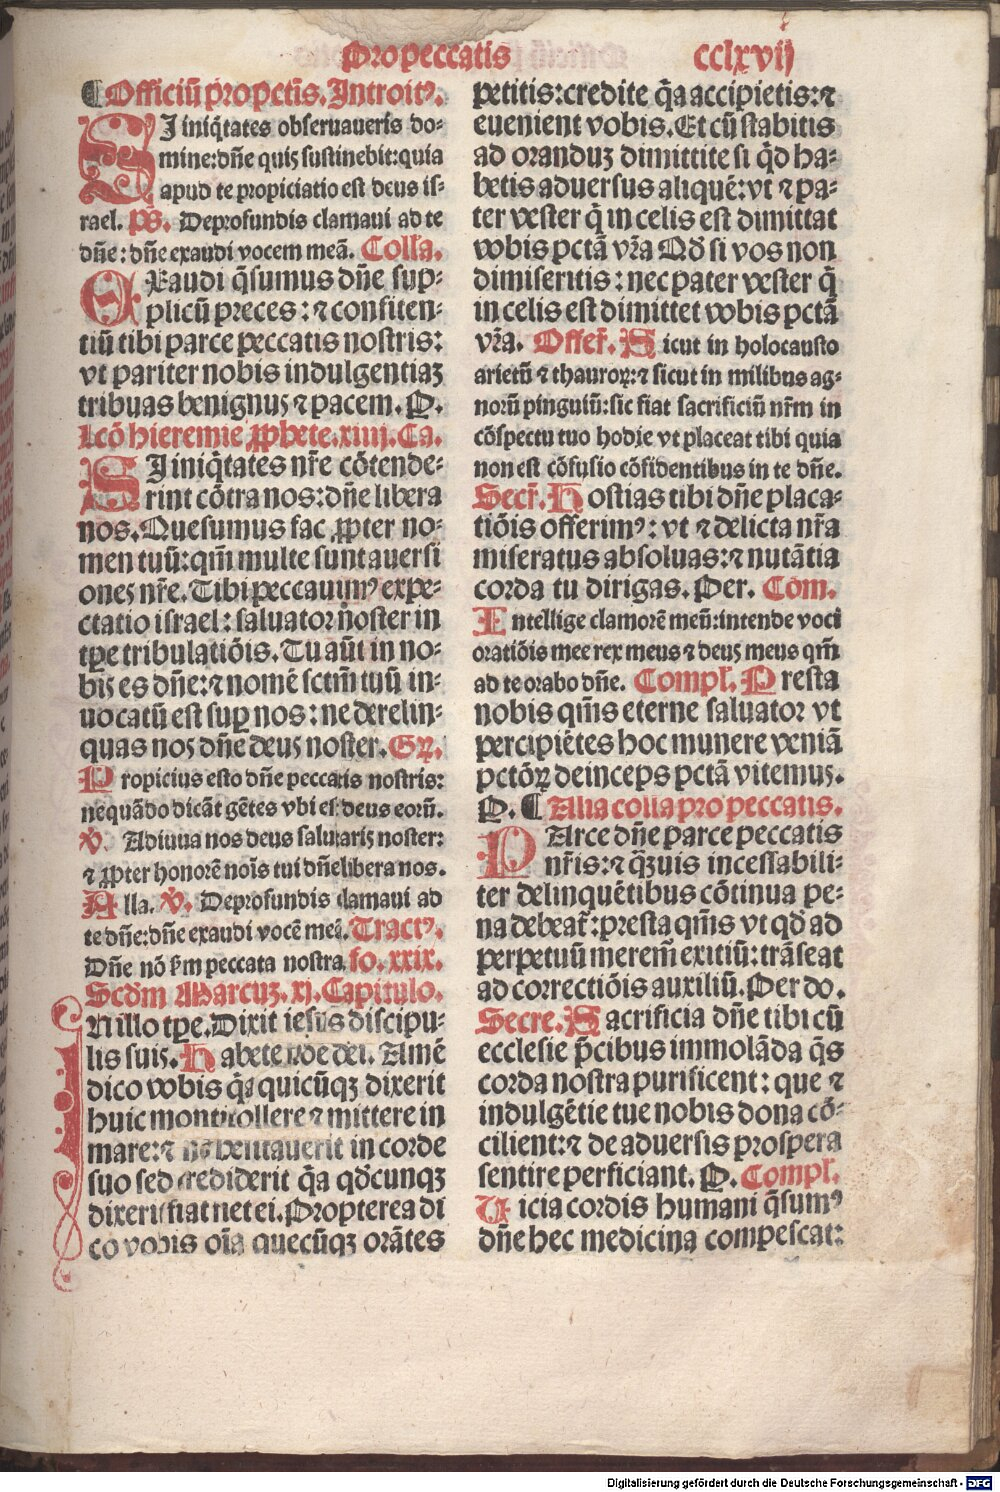 Pro peccatis
cclxvij
¶ Officiū pro pctīs. Introitꝰ.
SI iniq̄tates obseruaueris do-
mine: dn̄e quis sustinebit: quia
apud te propiciatio est deus is-
rael. p̄s. Deprofundis clamaui ad te
dn̄e: dn̄e exaudi vocem meā. Coll'a.
EXaudi q̄sumus dn̄e sup-
plicū preces: ⁊ confiten-
tiū tibi parce peccatis nostris:
vt pariter nobis indulgentiaʒ
tribuas benignus ⁊ pacem. P.
Lcō hieremie ꝓphete. xiiij. Ca.
SI iniq̄tates nr̄e cōtende-
rint cōtra nos: dn̄e libera
nos. Quesumus fac ꝓpter no-
men tuū: qm̄ multe sunt auersi
ones nr̄e. Tibi peccauimꝰ expe-
ctatio israel: saluator noster in
tꝑe tribulatiōis. Tu aūt in no-
bis es dn̄e: ⁊ nomē sctm̄ tuū in-
uocatū est suꝑ nos: ne derelin-
quas nos dn̄e deus noster. Gꝝ.
Propicius esto dn̄e peccatis nostris:
nequādo dicāt gētes vbi est deus eorū.
℣. Adiuua nos deus salutaris noster:
⁊ ꝓpter honorē noīs tui dn̄e libera nos.
Alla. ℣. Deprofundis clamaui ad
te dn̄e: dn̄e exaudi vocē meā. Tractꝰ.
Dn̄e nō s'm peccata nostra fo. xxix.
Scd̄m Marcuʒ. xj. Capitulo.
IN illo tꝑe. Dixit iesus discipu-
lis suis. Habete fidē dei. Amē
dico vobis q̄a quicūqʒ dixerit
huic monti tollere ⁊ mittere in
mare: ⁊ nō hesitauerit in corde
suo sed crediderit q̄a qd̄cunqʒ
dixerit fiat fiet ei. Propterea di
co vobis oīa quecūqʒ orātes
petitis: credite q̄a accipietis: ⁊
euenient vobis. Et cū stabitis
ad oranduʒ dimittite si q̄d ha-
betis aduersus aliquē: vt ⁊ pa-
ter vester q̄ in celis est dimittat
vobis pctā vr̄a Qd̄ si vos non
dimiseritis: nec pater vester q̄
in celis est dimittet vobis pctā
vr̄a. Offer̄. Sicut in holocausto
arietū ⁊ thauroꝝ: ⁊ sicut in milibus ag-
norū pinguiū: sic fiat sacrificiū nr̄m in
cōspectu tuo hodie vt placeat tibi quia
non est cōfusio cōfidentibus in te dn̄e.
Secr̄. Hostias tibi dn̄e placa-
tiōis offerimꝰ: vt ⁊ delicta nr̄a
miseratus absoluas: ⁊ nutātia
corda tu dirigas. Per. Com̄.
Intellige clamorē meū: intende voci
oratiōis mee rex meus ⁊ deus meus qm̄
ad te orabo dn̄e. Compl'. Presta
nobis qm̄s eterne saluator vt
percipiētes hoc munere veniā
pctōꝝ deinceps pctā vitemus.
P. ¶ Alia coll'a pro peccatis.
PArce dn̄e parce peccatis
nr̄is: ⁊ q̄ʒuis incessabili-
ter delinquētibus cōtinua pe-
na debeat̄: presta qm̄s vt qd̄ ad
perpetuū merem̄ exitiū: trāseat
ad correctiōis auxiliū. Per do.
Secre. Sacrificia dn̄e tibi cū
ecclesie p̄cibus immolāda q̄s
corda nostra purificent: que ⁊
indulgētie tue nobis dona cō-
cilient: ⁊ de aduersis prospera
sentire perficiant. P. Compl'.
Uicia cordis humani q̄sumꝰ
dn̄e hec medicina compescat:
Digitalisierung gefördert durch die Deutsche Forschungsgemeinschaft - DFG